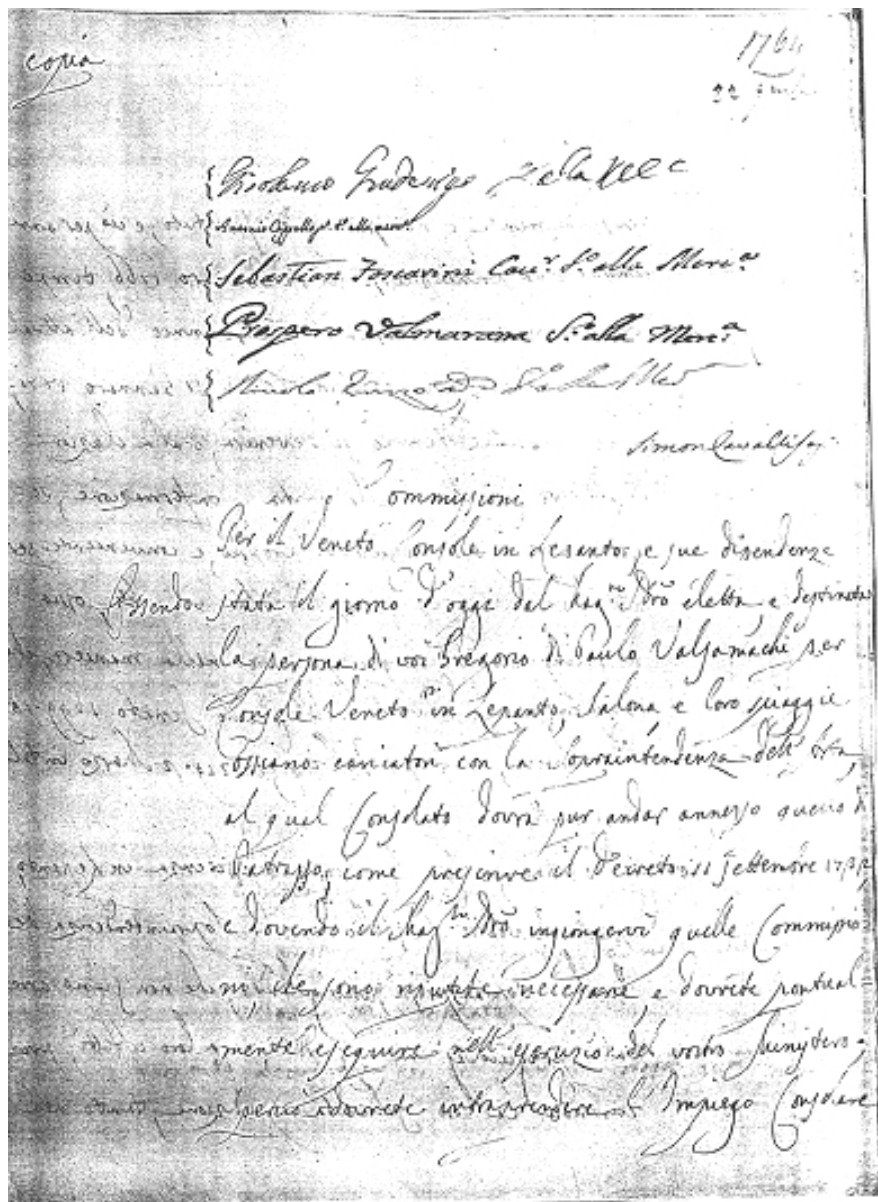 copia
1764
22
Girolamo Gradenigo
Sebastian Foscarini Cav.r S.o alla Merc.a
Prospero Valmarana S.o alla Mer.a
S.o alla Mer
Simon Cavalli
Commissioni
Per il Veneto Console in Lepanto, e sue dipendenze
Essendo stata il giorno d'oggi dal Mag.to N͞ro eletta, e destinata
la persona di voi Gregorio di Paulo Valsamachi per
Console Veneto in Lepanto, Salona e loro spiaggie
con la Sopraintendenza dell'Arta,
al qual Consolato dovrà pur andar annesso quello di
Patrasso, come prescrive il Decreto 11 settembre 1732
e dovendo il Mag.to N͞ro ingiongervi quelle Commissio
ni che sono riputate necessarie, e dovrete pontual
mente eseguire nell'esercizio del vostro Ministero.
dovrete intraprendere l'Impiego Consolare